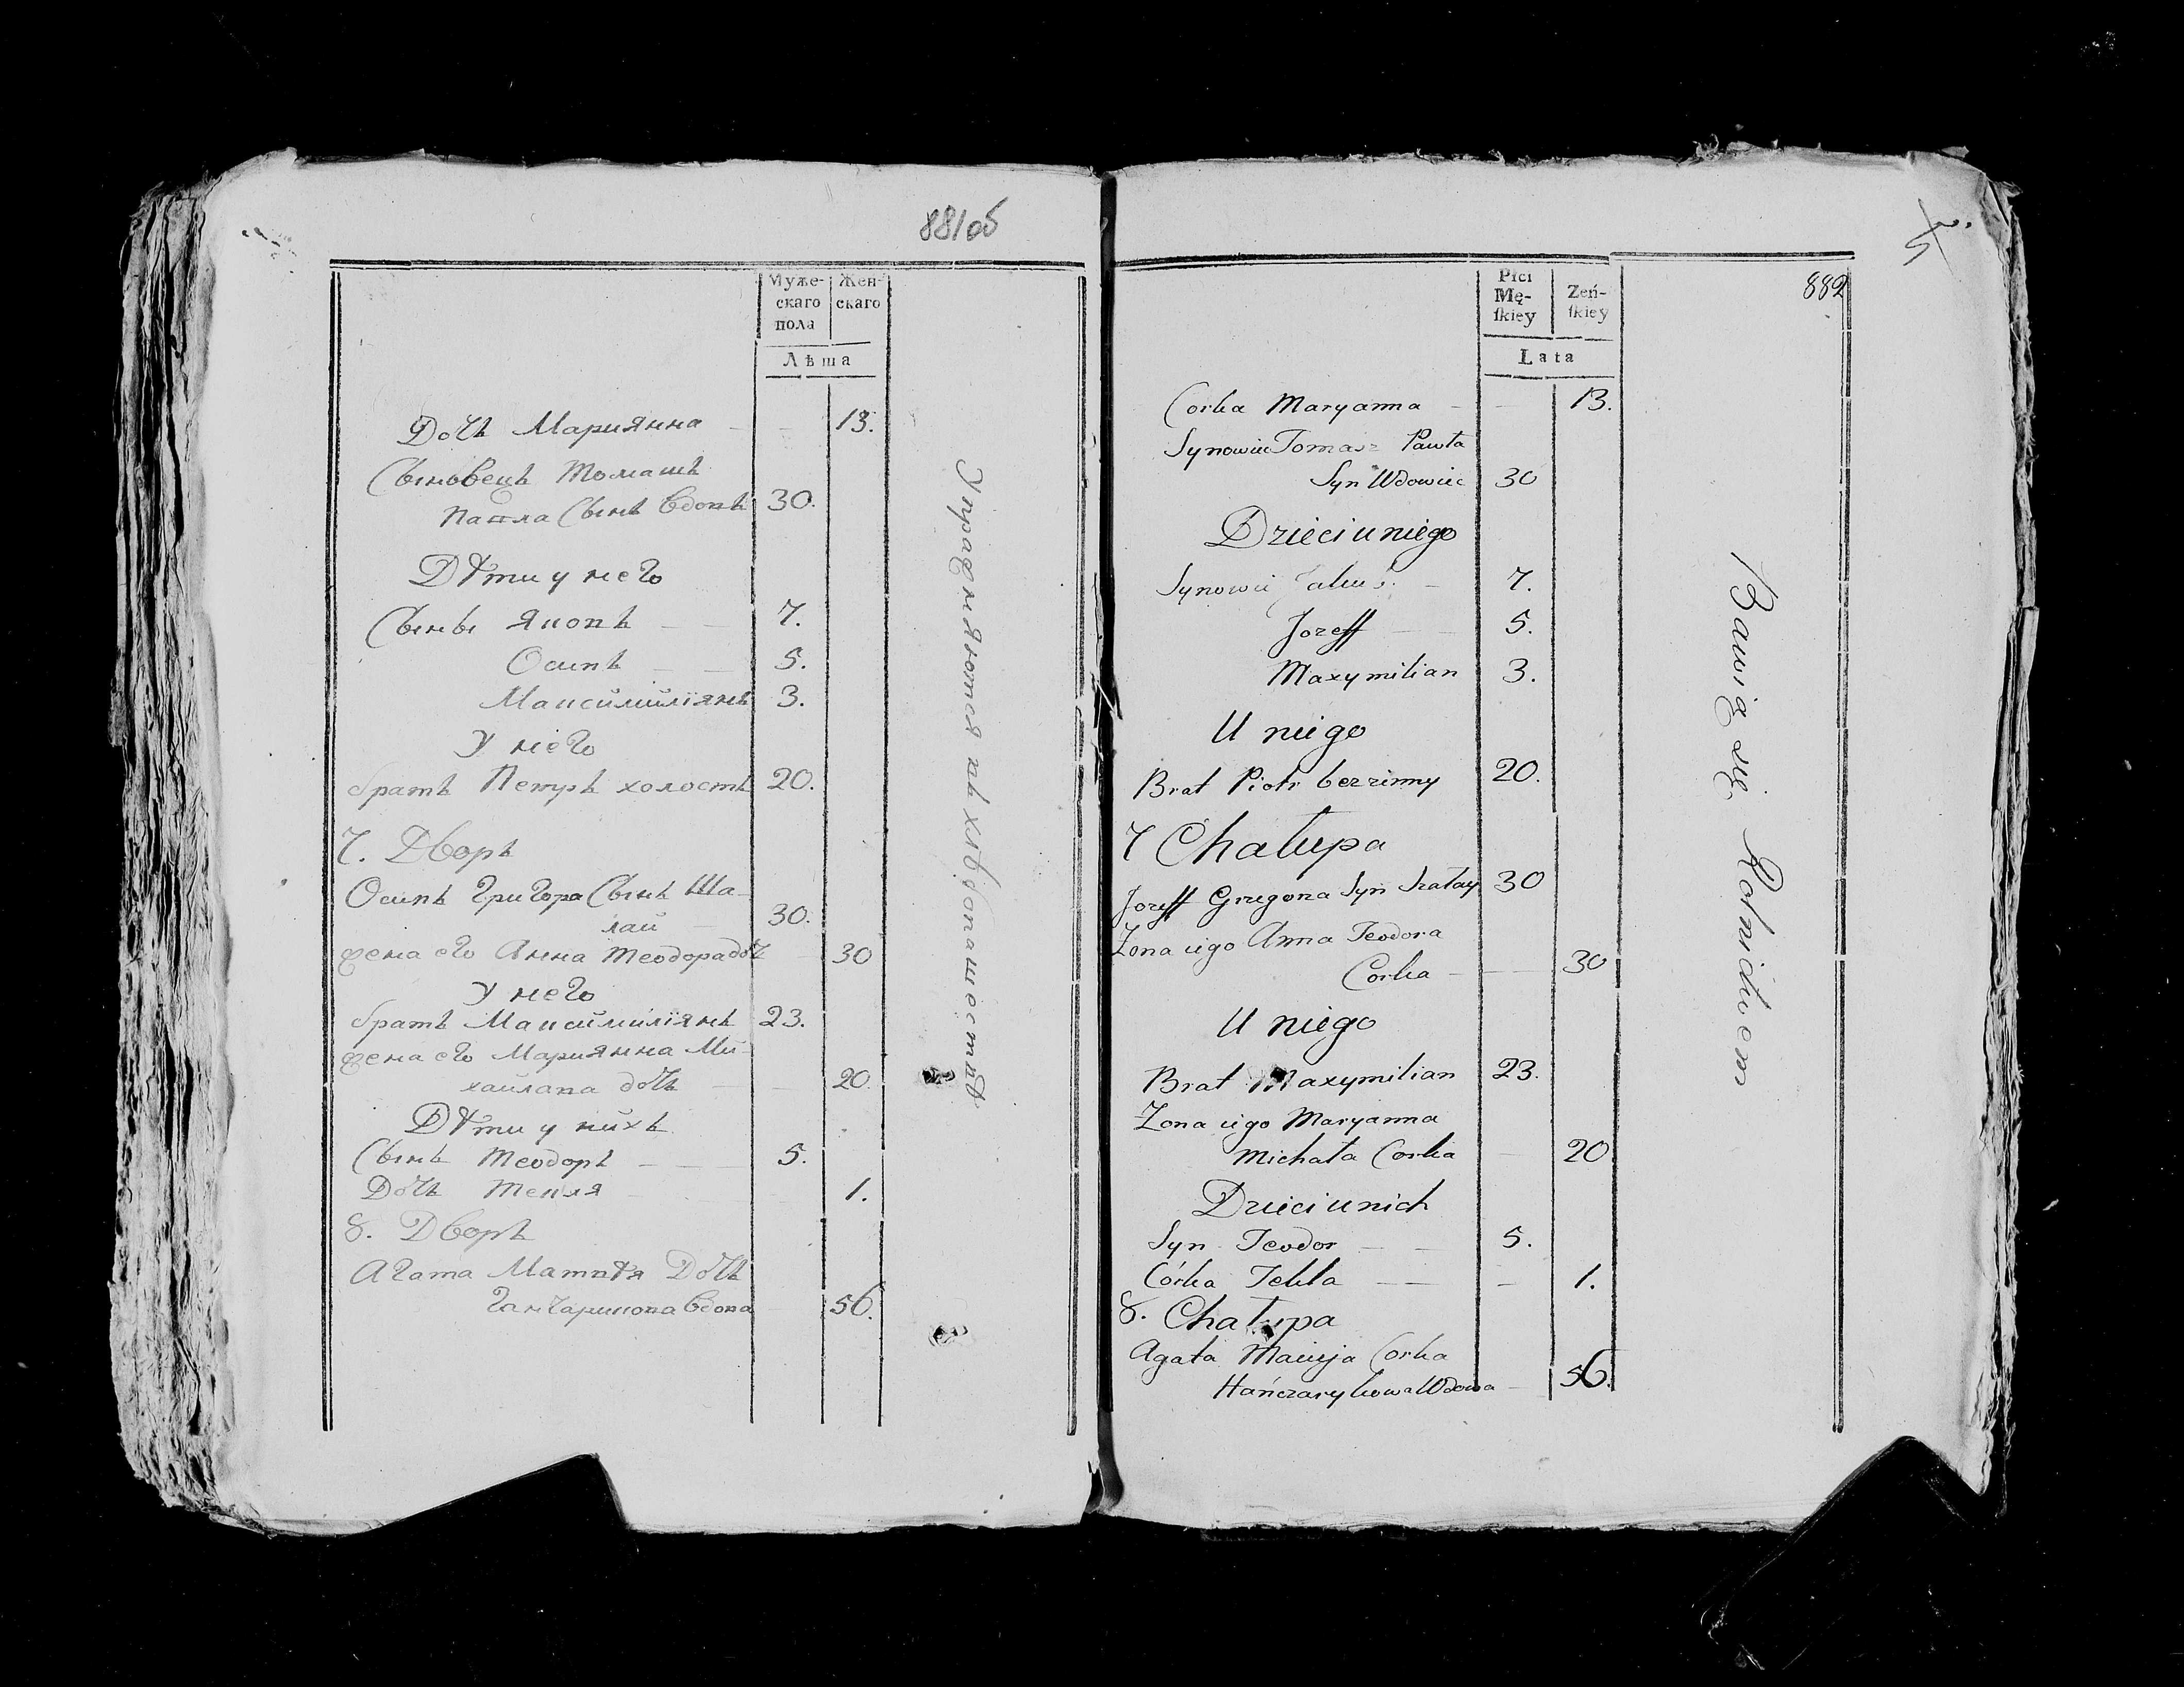 881об
Муже- Жен-
скаго скаго
пола
Лѣта
Дочь Мариянна - - 13.
Сыновецъ Томашъ
Павла Сынъ Вдовъ 30.
Дѣти у него
Сыны Якопъ - - 7.
Осипъ - - 5.
Максимиліянъ 3.
У него
братъ Петръ холостъ 20.
7. Дворъ
Осипъ Григора Сынъ Ша-
лай - 30.
жена его Анна Теодора дочь - 30
У него
братъ Максимиліянъ 23.
жена его Мариянна Ми-
хайлова дочь - - 20.
Дѣти у нихъ
Сынъ Теодоръ - - 5.
Дочь Текля - 1.
8. Дворъ
Агата Матвѣя Дочь
Ганчарикова Вдова 56.
Упражняются въ хлѣбопашествѣ
882
Płci Zeń-
Mę- ſkiey
ſkiey
Lata
Corka Maryanna - - 13.
Synowiec Tomasz Pawła
Syn Wdowiec 30
Dzieci u niego
Synowie Jakub - 7.
Jozeff - - 5.
Maxymilian 3.
U niego
Brat Piotr bezzenny 20.
7 Chałupa
Jozeff Grzegorza Syn Szałay 30
Zona iego Anna Teodora
Corka - - 30
U niego
Brat Maxymilian 23.
Zona iego Maryanna
Michała Corka - 20
Dzieci u nich
Syn Teodor - - 5.
Córka Tekla - - - 1.
8. Chałupa
Agata Macieja Corka
Hańczarykowa Wdowa - 56.
Bawią się Rolnictwem